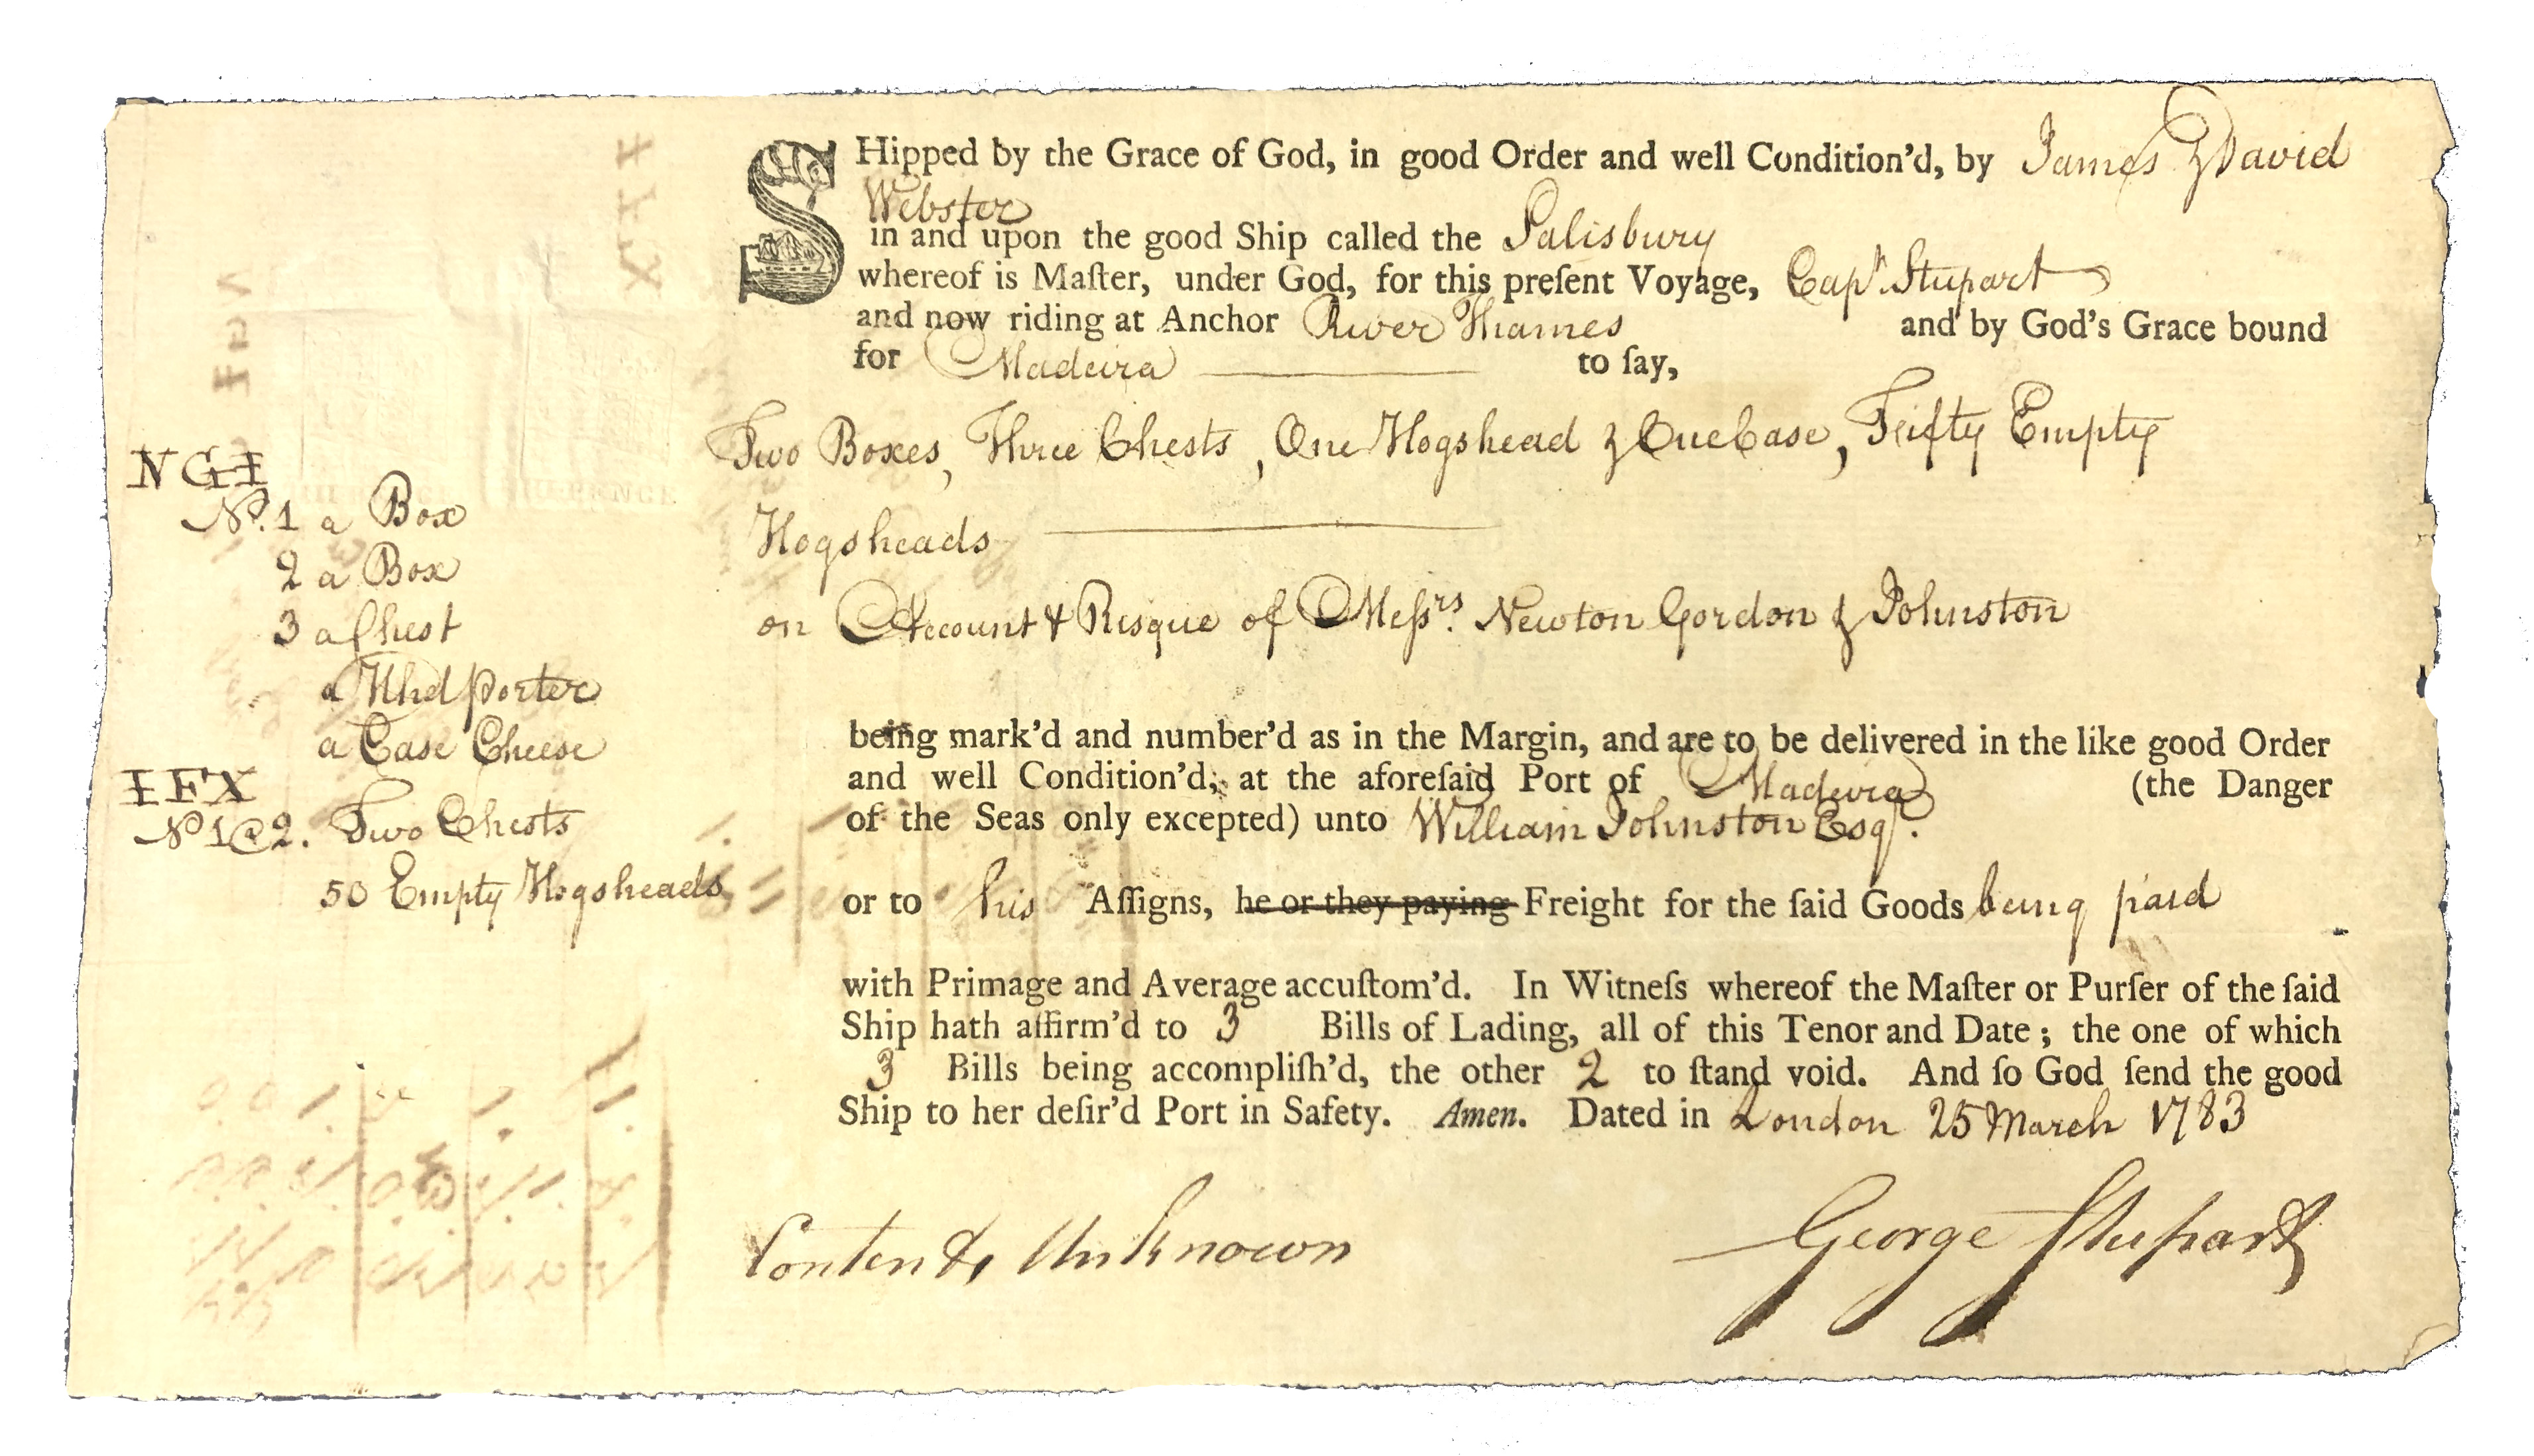 SHipped by the Grace of God, in good Order and well Condition'd, by James & David
Webster
in and upon the good Ship called the Salisbury
whereof is Maſter, under God, for this preſent Voyage, Capt. Stupart
and now riding at Anchor River Thames and by God's Grace bound
for Madeira to ſay,
Two Boxes, Three Chests, One Hogshead & One Case, Fifty Empty
Hogsheads
on Account & Risque of Meſsrs. Newton Gordon & Johnston
NGI
No. 1 a Box
2 a Box
3 a Chest
a Hhd porter
a Case Cheese
IFX
No 1@2. Two Chests
50 Empty Hogsheads
being mark'd and number'd as in the Margin, and are to be delivered in the like good Order
and well Condition'd, at the aforeſaid Port of Madeira (the Danger
of the Seas only excepted) unto William Johnston Esqr.
or to his Aſſigns, he or they paying Freight for the ſaid Goods being paid
with Primage and Average accuſtom'd. In Witneſs whereof the Maſter or Purſer of the ſaid
Ship hath affirm'd to 3 Bills of Lading, all of this Tenor and Date; the one of which
3 Bills being accompliſh'd, the other 2 to ſtand void. And ſo God ſend the good
Ship to her deſir'd Port in Safety. Amen. Dated in London 25 March 1783
Contents Unknown
George Stupart